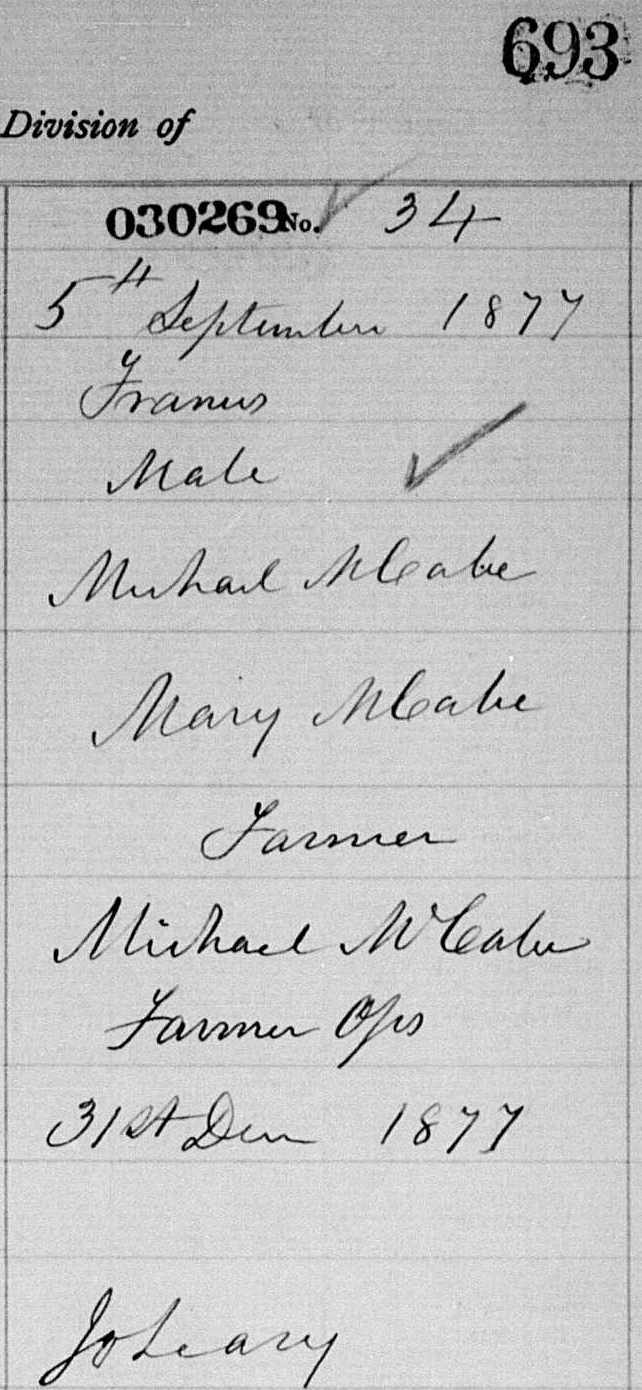 693
Division of
030269 No. 34
5th September 1877
Francis
Male
Michael McCabe
Mary McCabe
Farmer
Michael McCabe
Farmer Ops
31st Decr 1877
J O Leary